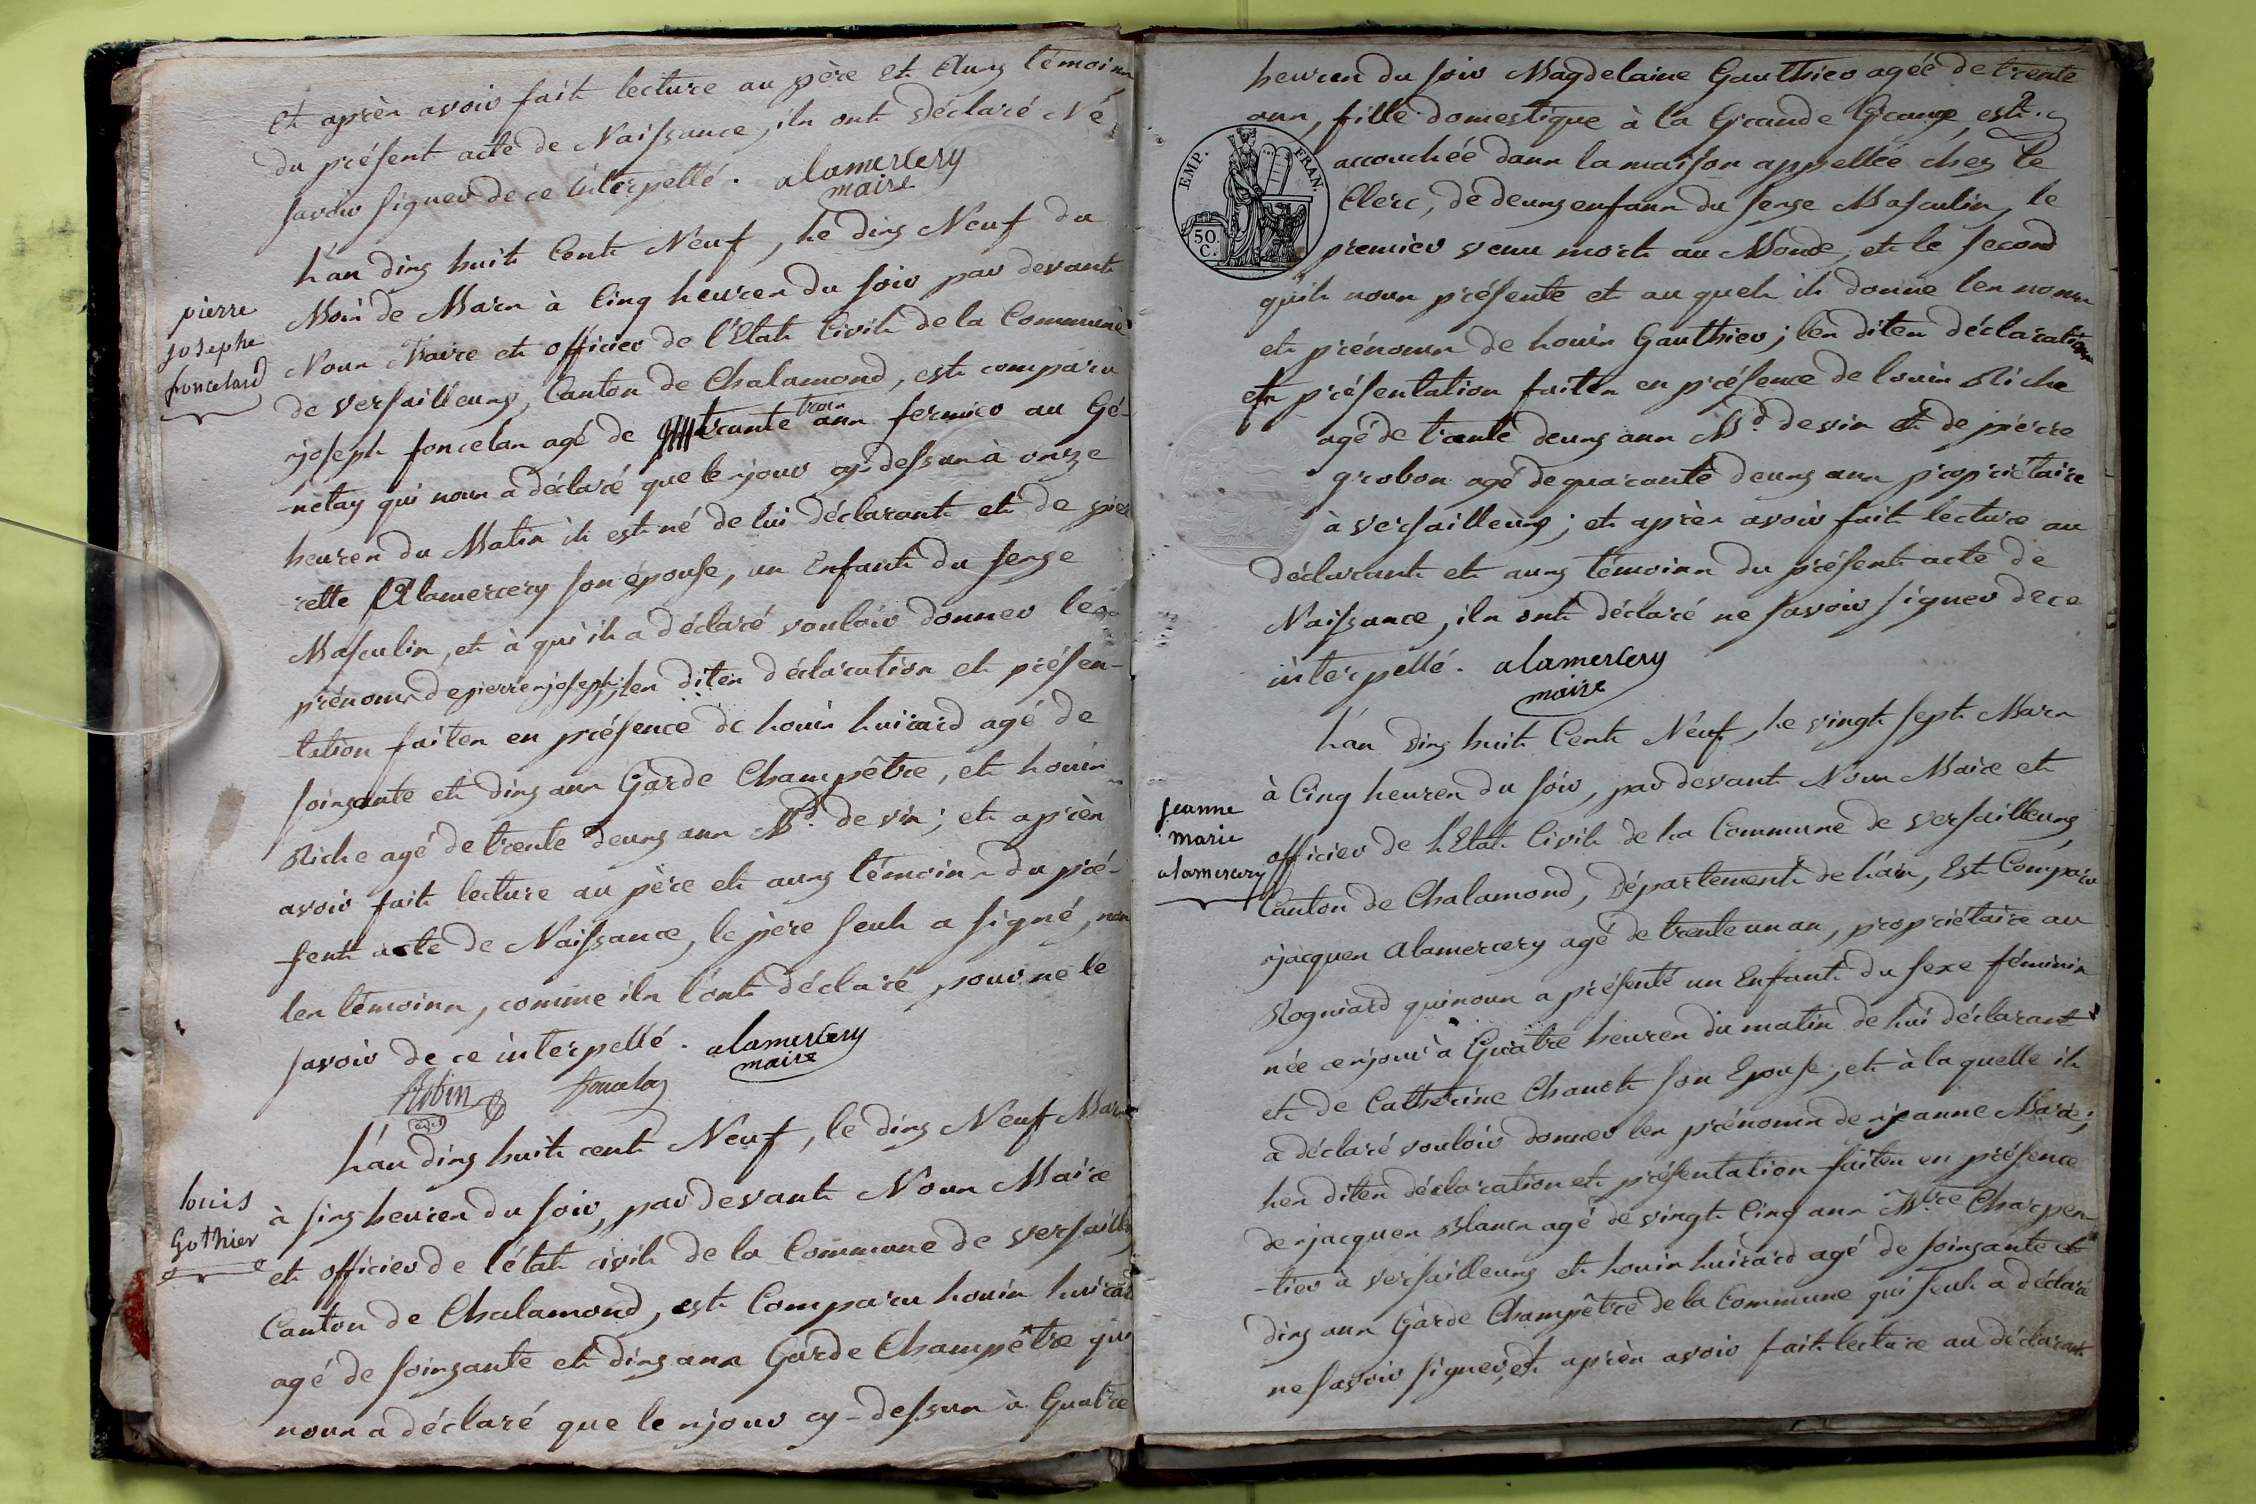 et après avoir fait lecture au père et aux témoins
du présent acte de Naissance, ils ont déclaré Ne
savoir signer de ce interpellé. alamercery
maire
L'an dix huit Cent Neuf, Le dix Neuf du
pierre
josephe
foncelard
Mois de Mars à Cinq heures du soir par devant
Nous Maire et officier de l'Etat Civil de la Commune
de versailleux, Canton de Chalamond, est comparu
joseph foncelas agé de trente trois ans fermier au Gé-
-netay qui nous a déclaré que le jour cy-dessus à onze
heures du Matin il est né de lui déclarant et de pier
rette Alamercery son épouse, un Enfant du sexe
Masculin, et à qui il a déclaré vouloir donner les
prénoms de pierre joseph; les dites déclaration et présen-
tation faites en présence de Louis huirard agé de
soixante et dix ans Garde Champêtre, et Louis
Riche agé de trente deux ans Md. de vin; et après
avoir fait lecture au père et aux témoins du pré-
sent acte de Naissance, le père seul a signé, non
les témoins, comme ils l'ont déclaré, pour ne le
savoir de ce interpellé. alamercery
maire
L'an dix huit cent Neuf, le dix Neuf Mars
louis
Gothier
à six heures du soir, par devant Nous Maire
et officier de l'état civil de la Commune de versaille
Canton de Chalamond, est Comparu Louis huirard
agé de soixante et dix ans Garde Champêtre qui
nous a déclaré que le jour cy-dessus à Quatre
heures du soir Magdelaine Gauthier agée de trente
ans, fille domestique à la Grande Grange, est
EMP. FRAN.
50.
C.
accouchée dans la maison appellée chez le
Clerc, de deux enfans du sexe Masculin, le
premier venu mort au Monde, et le second
qu'il nous présente et au quel il donne les noms
et prénoms de Louis Gauthier; les dites déclaration
et présentation faites en présence de Louis Riche
agé de trente deux ans Md. de vin et de pierre
grobon agé de quarante deux ans propriétaire
à versailleux; et après avoir fait lecture au
déclarant et aux témoins du présent acte de
Naissance, ils ont déclaré ne savoir signer de ce
interpellé. alamercery
maire
L'an dix huit Cent Neuf, Le vingt sept Mars
à Cinq heures du soir, par devant Nous Maire et
jeanne
marie
alamercery
officier de L'Etat Civil de La Commune de versailleux
Canton de Chalamond, Département de L'ain, Est Comparu
jacques Alamercery agé de trente un an, propriétaire au
Rogniard qui nous a présenté un Enfant du sexe féminin
née ce jour à Quatre heures du matin de Lui déclarant
et de Catherine Chanel son Epouse, et à la quelle il
a déclaré vouloir donner les prénoms de jeanne Marie;
Les dites déclaration et présentation faites en présence
de jacques Blanc agé de vingt Cinq ans Mtre Charpen
-tier à versailleux et Louis huirard agé de soixante et
dix ans Garde Champêtre de la Commune qui seul a déclaré
ne savoir signer, et après avoir fait lecture au déclarant